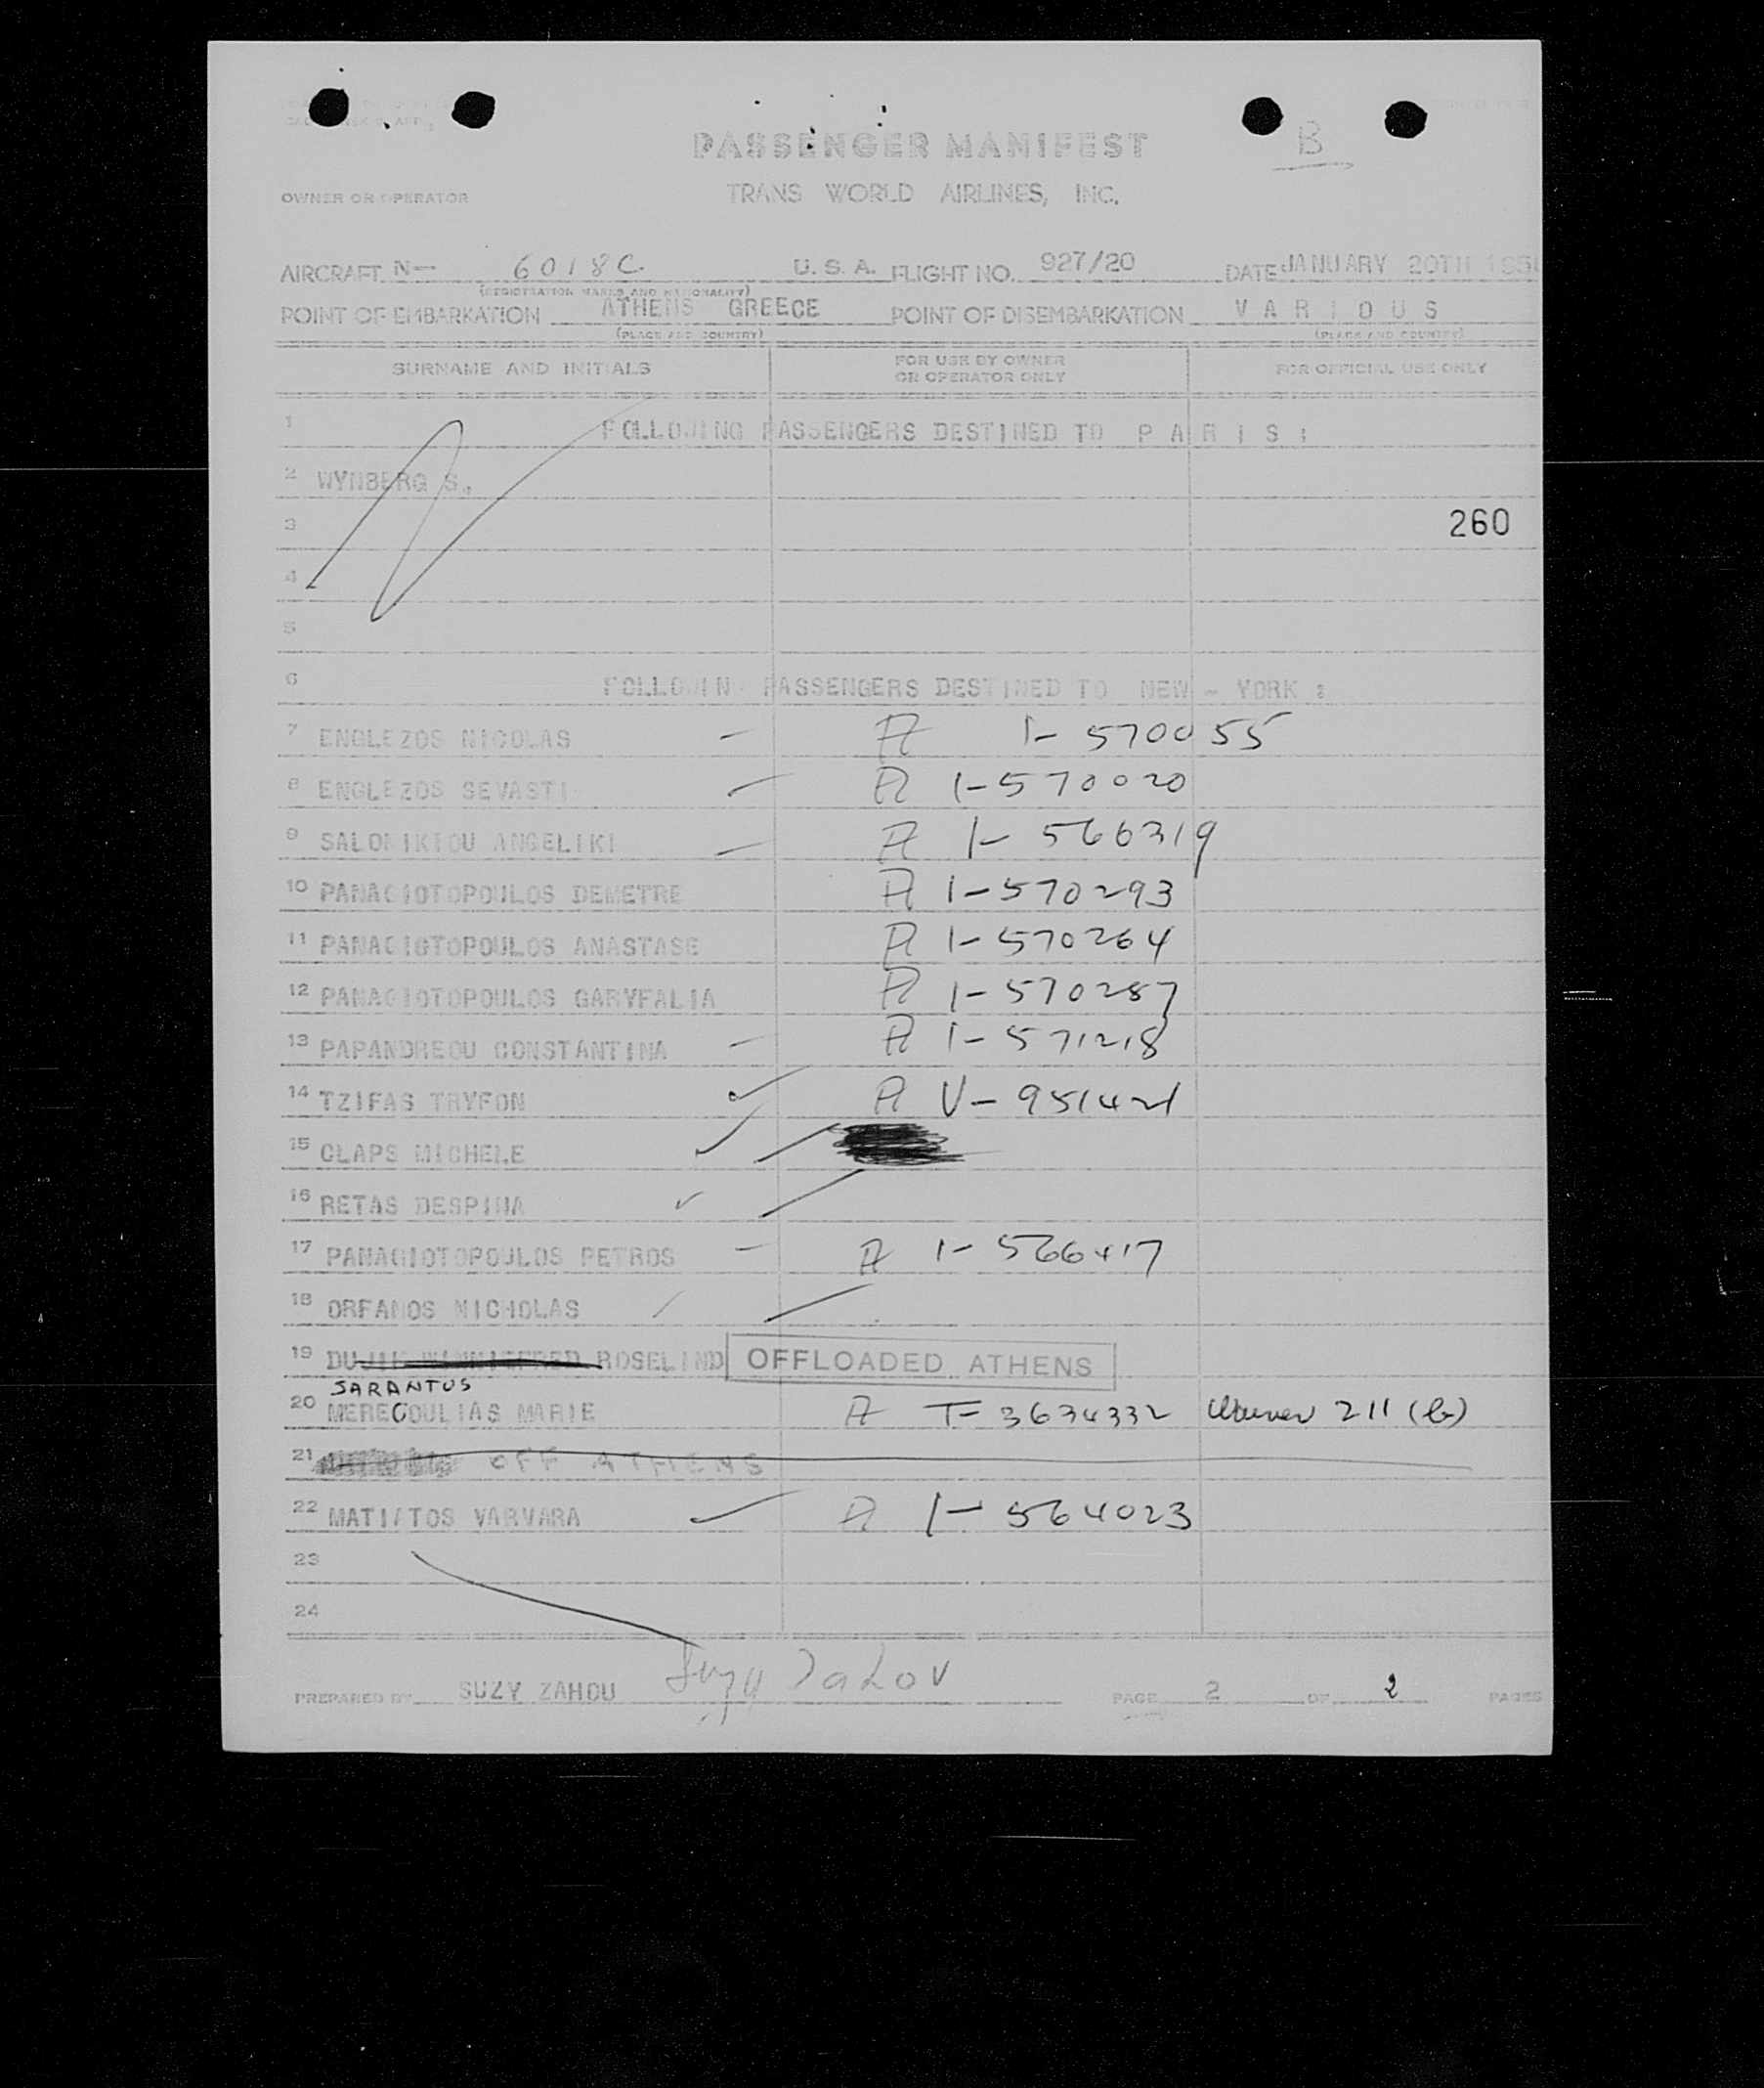 B
PASSENGER MANIFEST
OWNER OR OPERATOR
TRANS WORLD AIRLINES, INC.
AIRCRAFT N— 6018C U. S. A. FLIGHT NO. 927/20 DATE JANUARY 20TH
(REGISTRATION MARKS AND NATIONALITY)
POINT OF EMBARKATION ATHENS GREECE POINT OF DISEMBARKATION V A R I O U S
(PLACE AND COUNTRY) (PLACE AND COUNTRY)
SURNAME AND INITIALS FOR USE BY OWNER OR OPERATOR ONLY FOR OFFICIAL USE ONLY
1 FOLLOWING PASSENGERS DESTINED TO P A R I S :
2 WYNBERG S.,
3 260
4
5
6 FOLLOWING PASSENGERS DESTINED TO NEW - YORK :
7 ENGLEZOS NICOLAS — A 1- 570055
8 ENGLEZOS SEVASTI — A 1-570020
9 SALONIKIOU ANGELIKI — A 1- 566319
10 PANAGIOTOPOULOS DEMETRE A 1-570293
11 PANAGIOTOPOULOS ANASTASE A 1-570264
12 PANAGIOTOPOULOS GARYFALIA A 1-570287
13 PAPANDREOU CONSTANTINA — A 1-571218
14 TZIFAS TRYFON ✓ A V-951421
15 CLAPS MICHELE ✓
16 RETAS DESPINA ✓
17 PANAGIOTOPOULOS PETROS — A 1- 566417
18 ORFANOS NICHOLAS
19 ROSELIND OFFLOADED ATHENS
SARANTOS
20 MERECOULIAS MARIE A T- 3634332 211 (b)
21 OFF ATHENS
22 MATIATOS VARVARA ✓ A 1- 564023
23
24
PREPARED BY SUZY ZAHOU Suzy Zahov PAGE 2 OF 2 PAGES